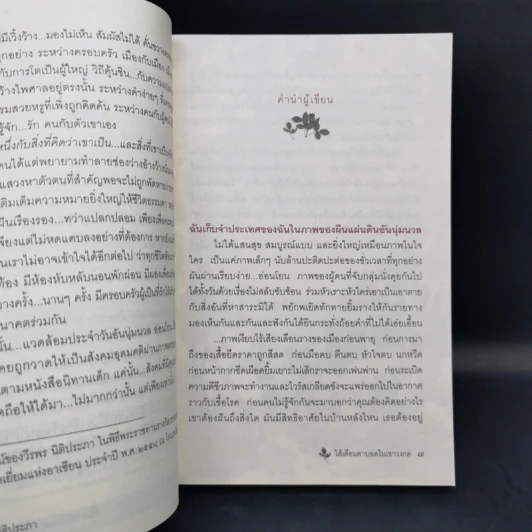 มีเวิ้งว้าง...มองไม่เห็น สัมผัสไม่ได้
ระหว่างครอบครัว เมืองกับเมือง
กับการโตเป็นผู้ใหญ่ วิถีคุ้นชิน...กับความ
ว้างไพศาลอยู่ตรงนั้น ระหว่างคำง่ายๆ
รมสวยหรูที่เพิ่งถูกคิดค้น ระหว่างคนกับ
รู้จัก...รัก คนกับตัวเขาเอง
หนึ่งกับสิ่งที่คิดว่าเขาเป็น...และสิ่งที่เขาเป็น
คนได้แต่พยายามทำลายช่องว่าง
แสวงหาตัวตนที่สำคัญพอจะไม่ถูก
เติมเต็มความหมายยิ่งใหญ่ให้ชีวิตธรรมดา
ฝันเรืองรอง...ทว่าแปลกปลอม เพียงเพื่อ
เพียงแต่ไม่หดแคบลงอย่างที่ต้องการ
นเราไม่อาจเข้าใจได้อีกต่อไป ว่าทำไม
มีห้องหับหลับนอนพักผ่อน มีมอง
างครั้ง...นานๆ ครั้ง มีครอบครัวผู้เป็นที่รัก
นาคตร่วมกัน
น...แวดล้อมประจำวันอันนุ่มนวล อ่อนโยน
คยถูกวาดให้เป็นสังคมอุดมคติผ่านภาพ
ตามหนังสือนิทานเด็ก แค่นั้น...
ถือให้ได้มา...ไม่มากกว่านั้น แต่เพียง
น์ของวีรพร นิติประภา ในพิธีพระราชทานรางวัล
เยี่ยมแห่งอาเซียน ประจำปี พ.ศ. ๒๕๕๘
ติประภา
คำนำผู้เขียน
ฉันเก็บจำประเทศของฉันในภาพของผืนแผ่นดินอันนุ่มนวล
ไม่ได้แสนสุข สมบูรณ์แบบ และยิ่งใหญ่เหมือนภาพในใจ
ใคร เป็นแค่ภาพเล็กๆ นับล้านปะติดปะต่อของชั่วเวลาที่ทุกอย่าง
มันผ่านเรียบง่าย...อ่อนโยน ภาพของผู้คนที่จับกลุ่มนั่งคุยกันไป
ได้ทั้งวันด้วยเรื่องไม่สลับซับซ้อน ร่วมหัวเราะหัวใคร่เอาเป็นเอาตาย
กับสิ่งอันที่หาสาระมิได้ พยักพเยิดทักทายยิ้มรางให้กันรายทาง
มองเห็นกันและกันและฟังกันได้ยินกระทั่งถ้อยคำที่ไม่ได้เอ่ยเอื้อน
...ภาพเงียบไร้สุ้งเสียงเลือนรางของเมืองก่อนพายุ ก่อนการมา
ถึงของเสื้อยืดราคาถูกสีสด ก่อนมือตบ ตีนตบ หัวใจตบ นกหวีด
ก่อนหน้ากากชืดเผือดยิ้มเยาะไม่เลิกราจะออกเพ่นพ่าน ก่อนระเบิด
ความตีชีวภาพจะทำงานและไวรัสเกลียดชังจะแพร่ออกไปในอากาศ
ราวกับเชื้อโรค ก่อนคนไม่รู้จักกันจะมาบอกว่าคุณต้องคิดอย่างไร
เขาต้องฝันถึงสิ่งใด มันมีสิทธิอาศัยในบ้านหลังไหน เธอต้องอยู่
ไส้เดือนตาบอดในเขาวงกต ๗